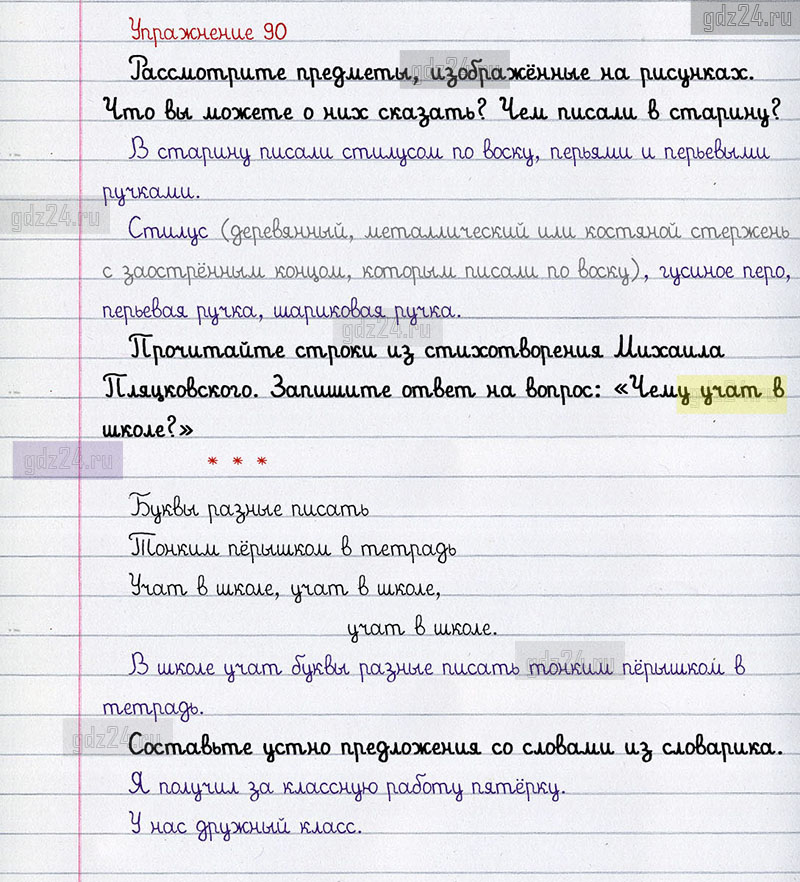 gdz24.ru
Упражнение 90
Рассмотрите предметы, изображённые на рисунках.
gdz24.ru
Что вы можете о них сказать? Чем писали в старину?
В старину писали стилусом по воску, перьями и перьевыми
ручками.
gdz24.ru
Стилус (деревянный, металлический или костяной стержень
с заострённым концом, которым писали по воску), гусиное перо,
перьевая ручка, шариковая ручка.
gdz24.ru
Прочитайте строки из стихотворения Михаила
Пляцковского. Запишите ответ на вопрос: «Чему учат в
школе?»
gdz24.ru
* * *
Буквы разные писать
Тонким пёрышком в тетрадь
Учат в школе, учат в школе,
учат в школе.
В школе учат буквы разные писать тонким пёрышком в
gdz24.ru
тетрадь.
gdz24.ru
Составьте устно предложения со словами из словарика.
Я получил за классную работу пятёрку.
У нас дружный класс.